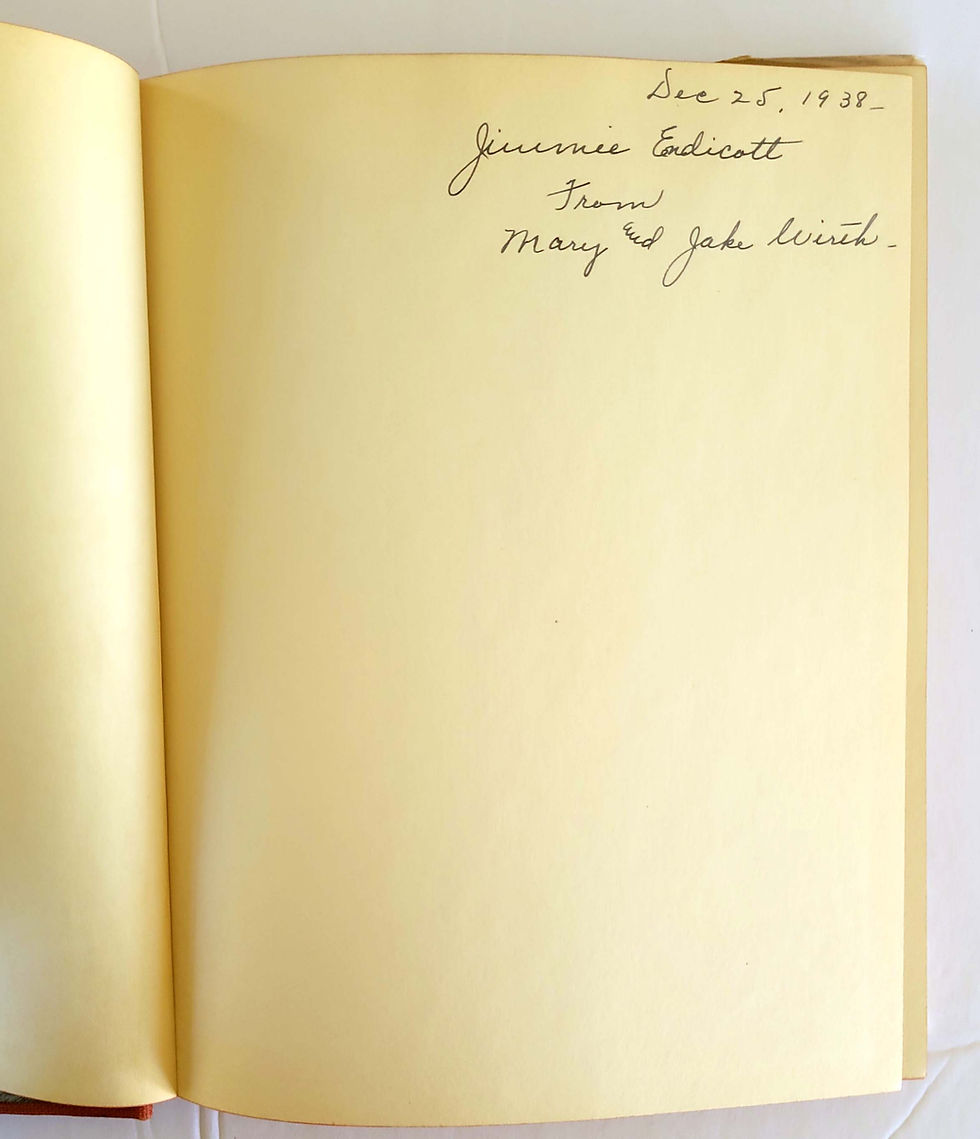 Dec 25, 1938-
Jimmie Endicott
From
Mary and Jake Wirth-